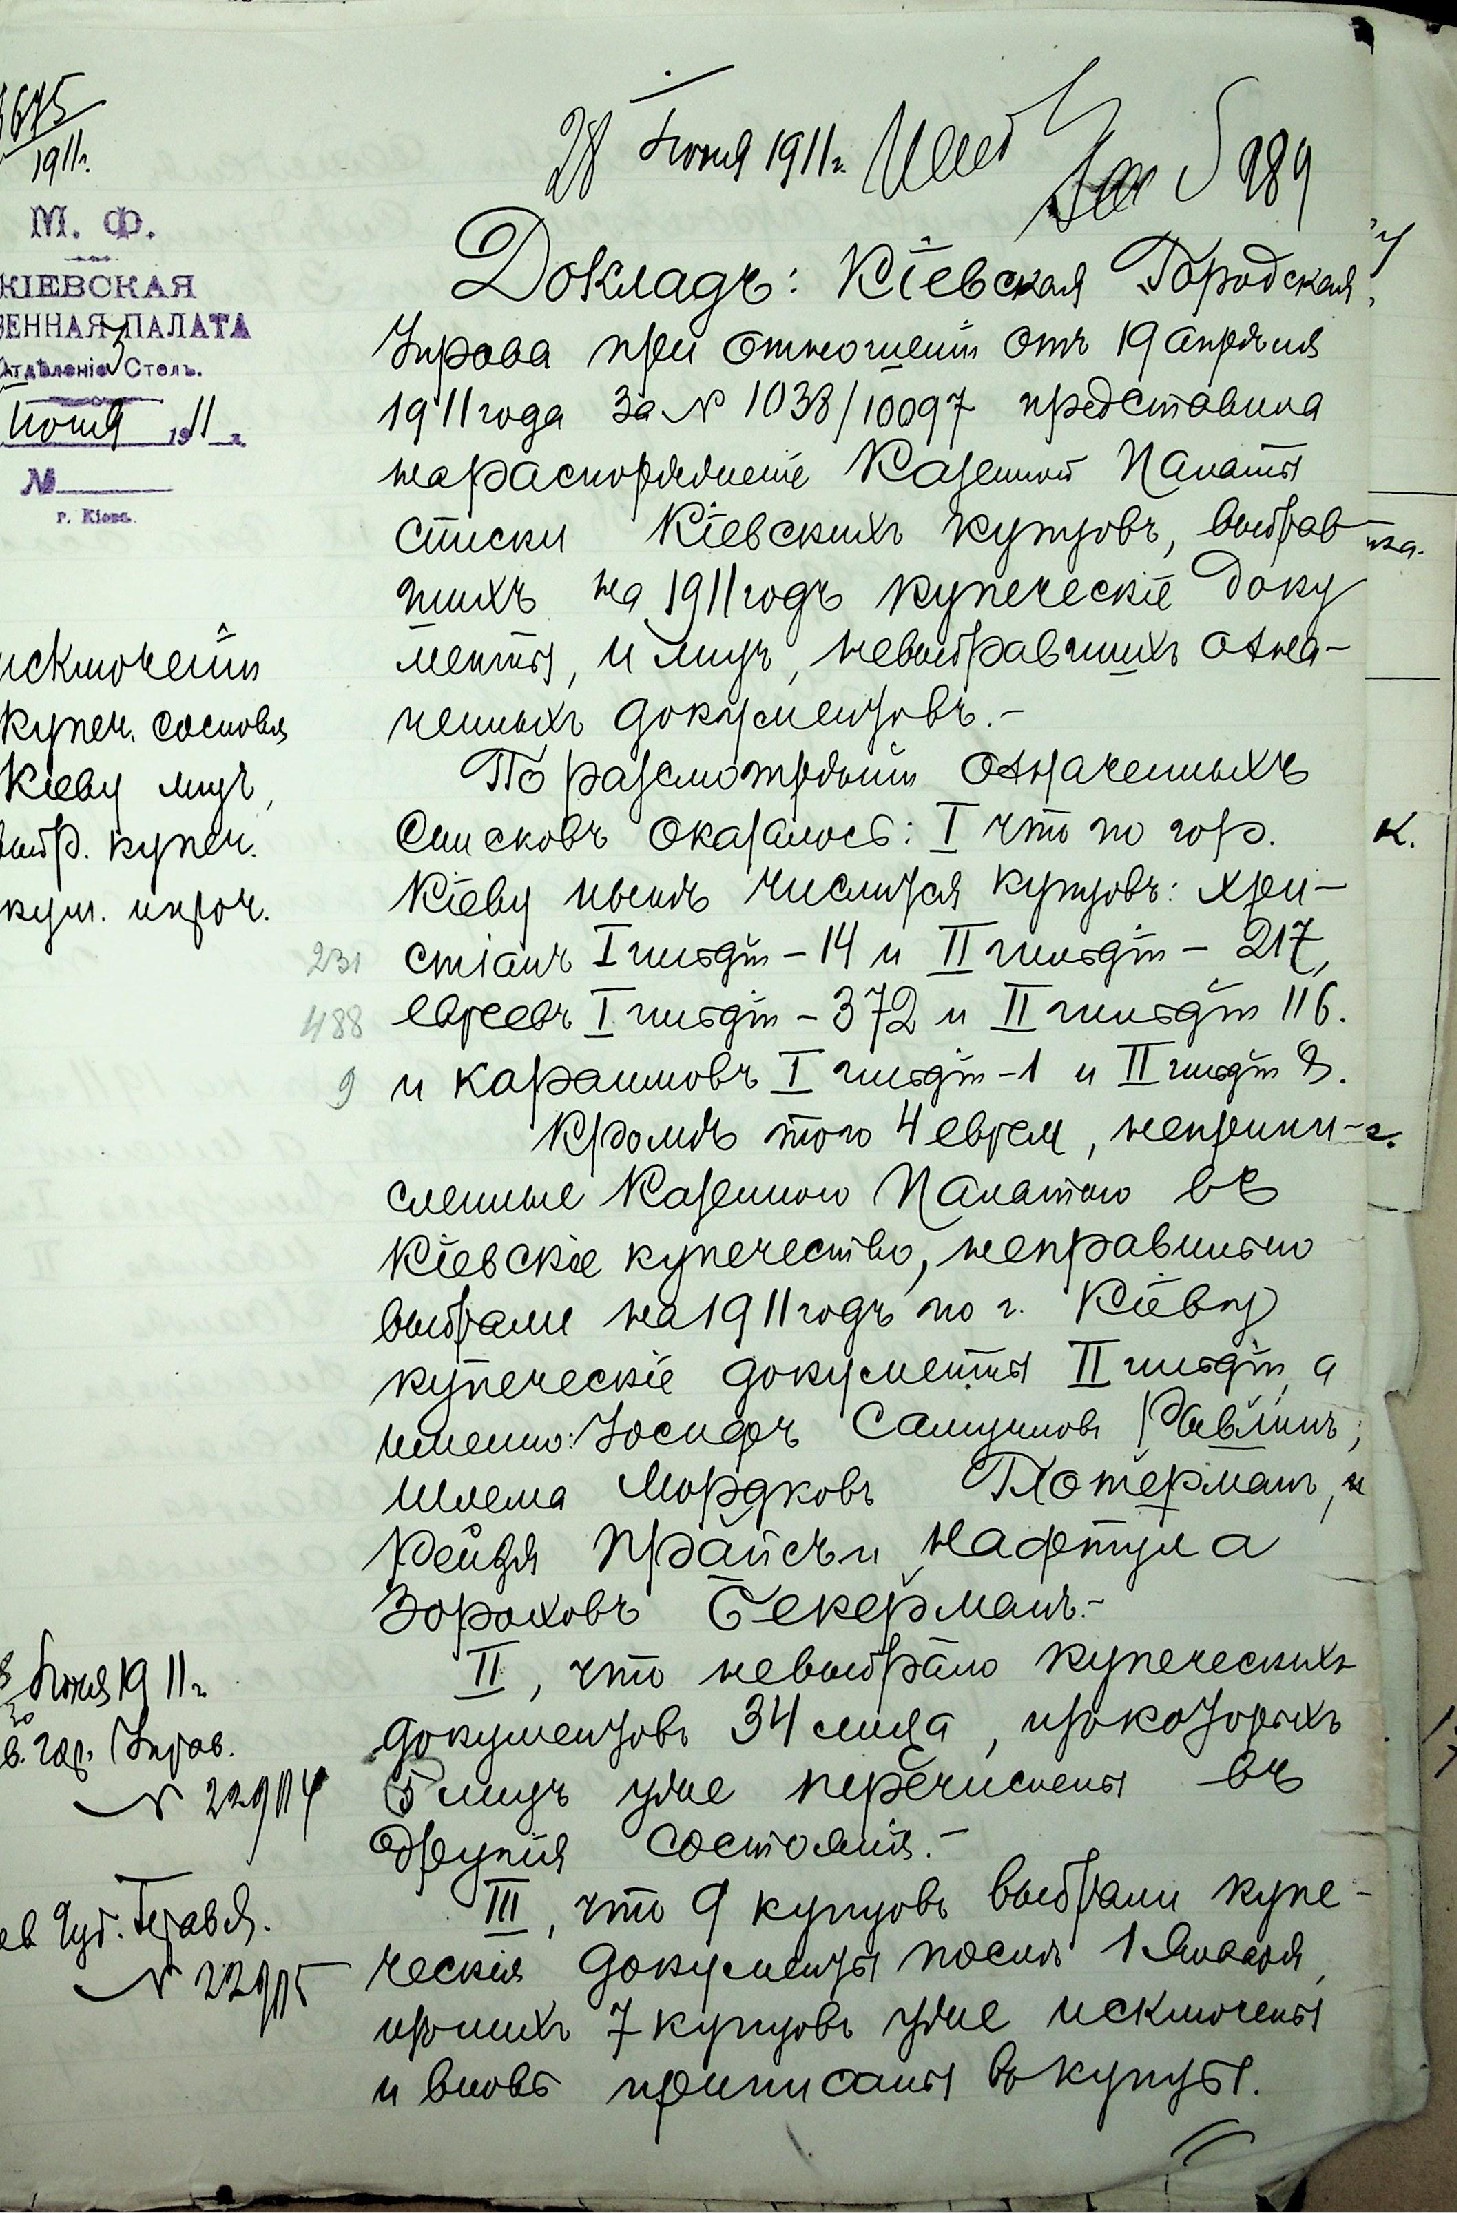 3675
1911г.
М. Ф.
КІЕВСКАЯ
ЗЕННАЯ ПАЛАТА
Отдѣленіе 3 Столъ.
Іюня 1911 г.
№
г. Кіевъ.
исключеніи
купеч. сословія
Кіеву лицъ,
выбр. купеч.
кум. ипроч.
28 Іюня 1911г.
289
Докладъ: Кіевская Городская
Управа при отношеніи отъ 19 апрѣля
1911 года за № 1038/10097 представила
нараспоряженіе Казенной Палаты
списки Кіевскихъ купцовъ, выбрав-
шихъ на 1911 годъ купеческіе доку
менты, и лицъ, невыбравшихъ озна-
ченныхъ документовъ.-
По разсмотрѣніи означенныхъ
списковъ оказалось: I что по гор.
Кіеву нынѣ числится купцовъ: хри-
231 стіанъ I гильдіи - 14 и II гильдіи - 217,
488 евреевъ I гильдіи - 372 и II гильдіи 116.
9 и караимовъ I гильдіи - 1 и II гильдіи 8.
Кромѣ того 4 еврея, неприпи-
сленные Казенною Палатою въ
Кіевскіе купечество, неправильно
выбрали на 1911 годъ по г. Кіеву
купеческіе документы II гильдіи, а
именно: Іосифъ Самуиловъ Ривлинъ,
Шлема Мордковъ Плотерманъ, и
Рейзя Прайсъ и Нафтула
Зораховъ Секерманъ.-
II, что невыбрало купеческихъ
документовъ 34 лица, изкоторыхъ
5 лицъ уже перечислены въ
другія состоянія.-
III, что 9 купцовъ выбрали купе-
ческія документы послѣ 1 Января,
изнихъ 7 купцовъ уже исключены
и вновь приписаны въ купцы.
Іюня 1911г.
в. гор. Управ.
№ 22904
№ 22905